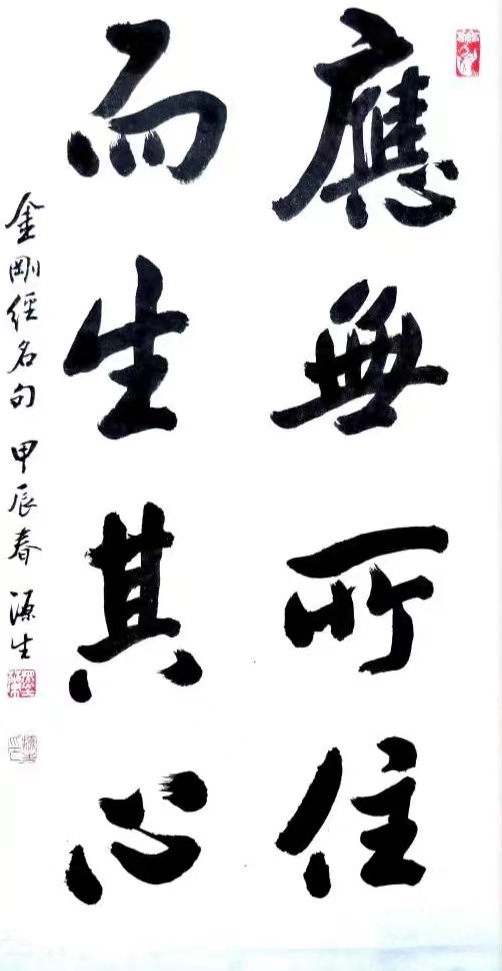 應無所住
而生其心
金剛經名句 甲辰春 源生